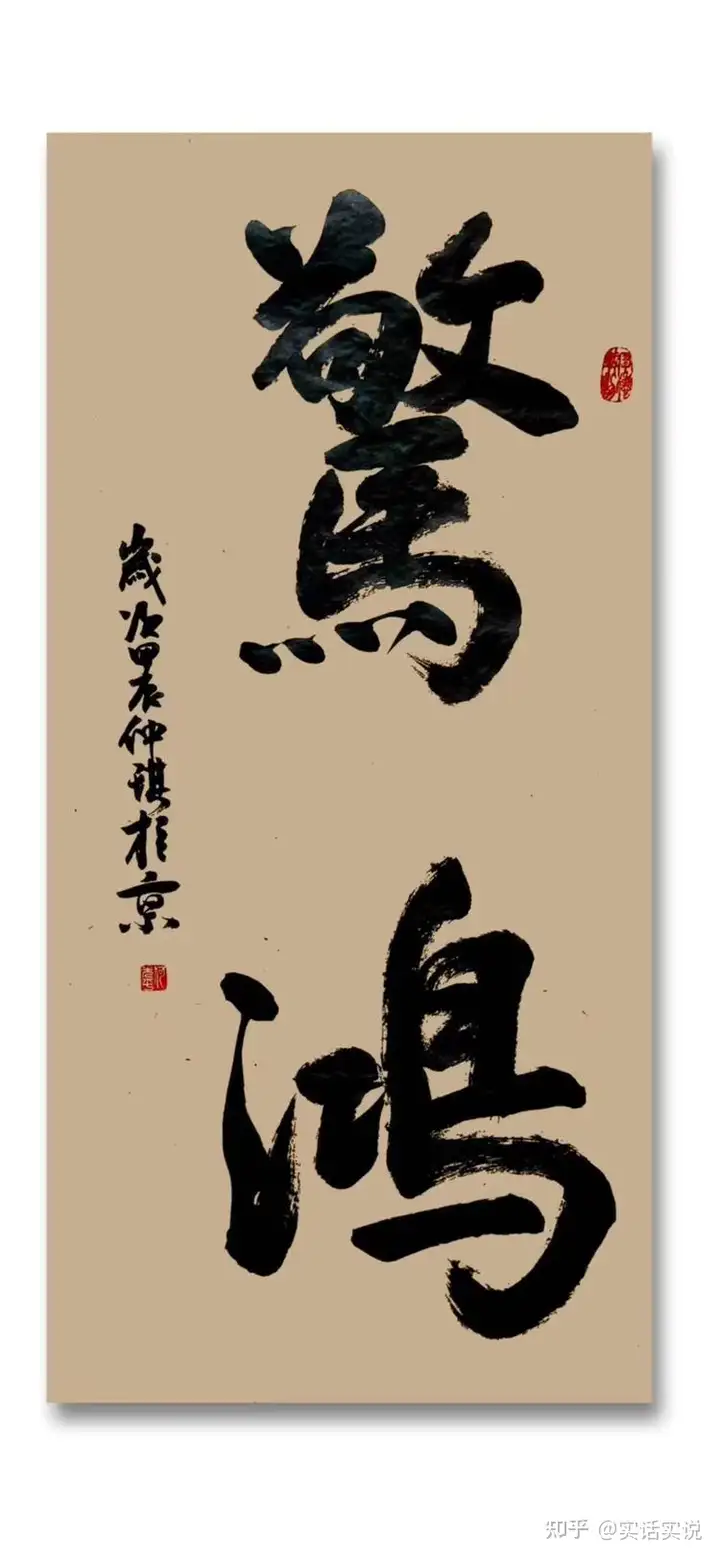 驚鴻
歲次甲辰仲琪於京
知乎 @实话实说